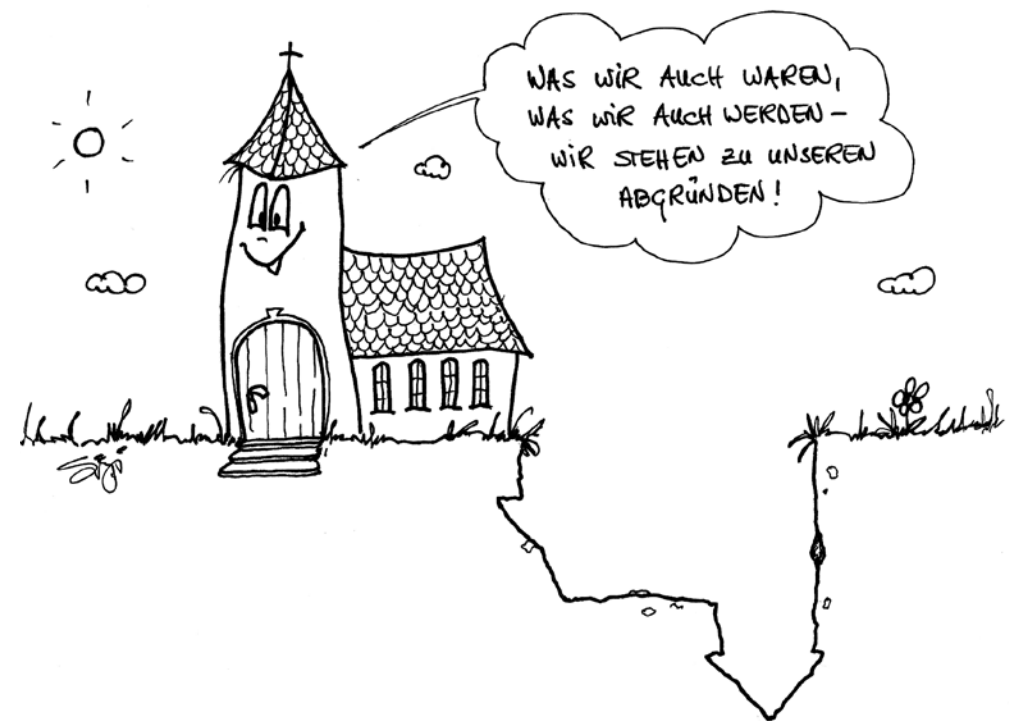 WAS WIR AUCH WAREN,
WAS WIR AUCH WERDEN –
WIR STEHEN ZU UNSEREN
ABGRÜNDEN!